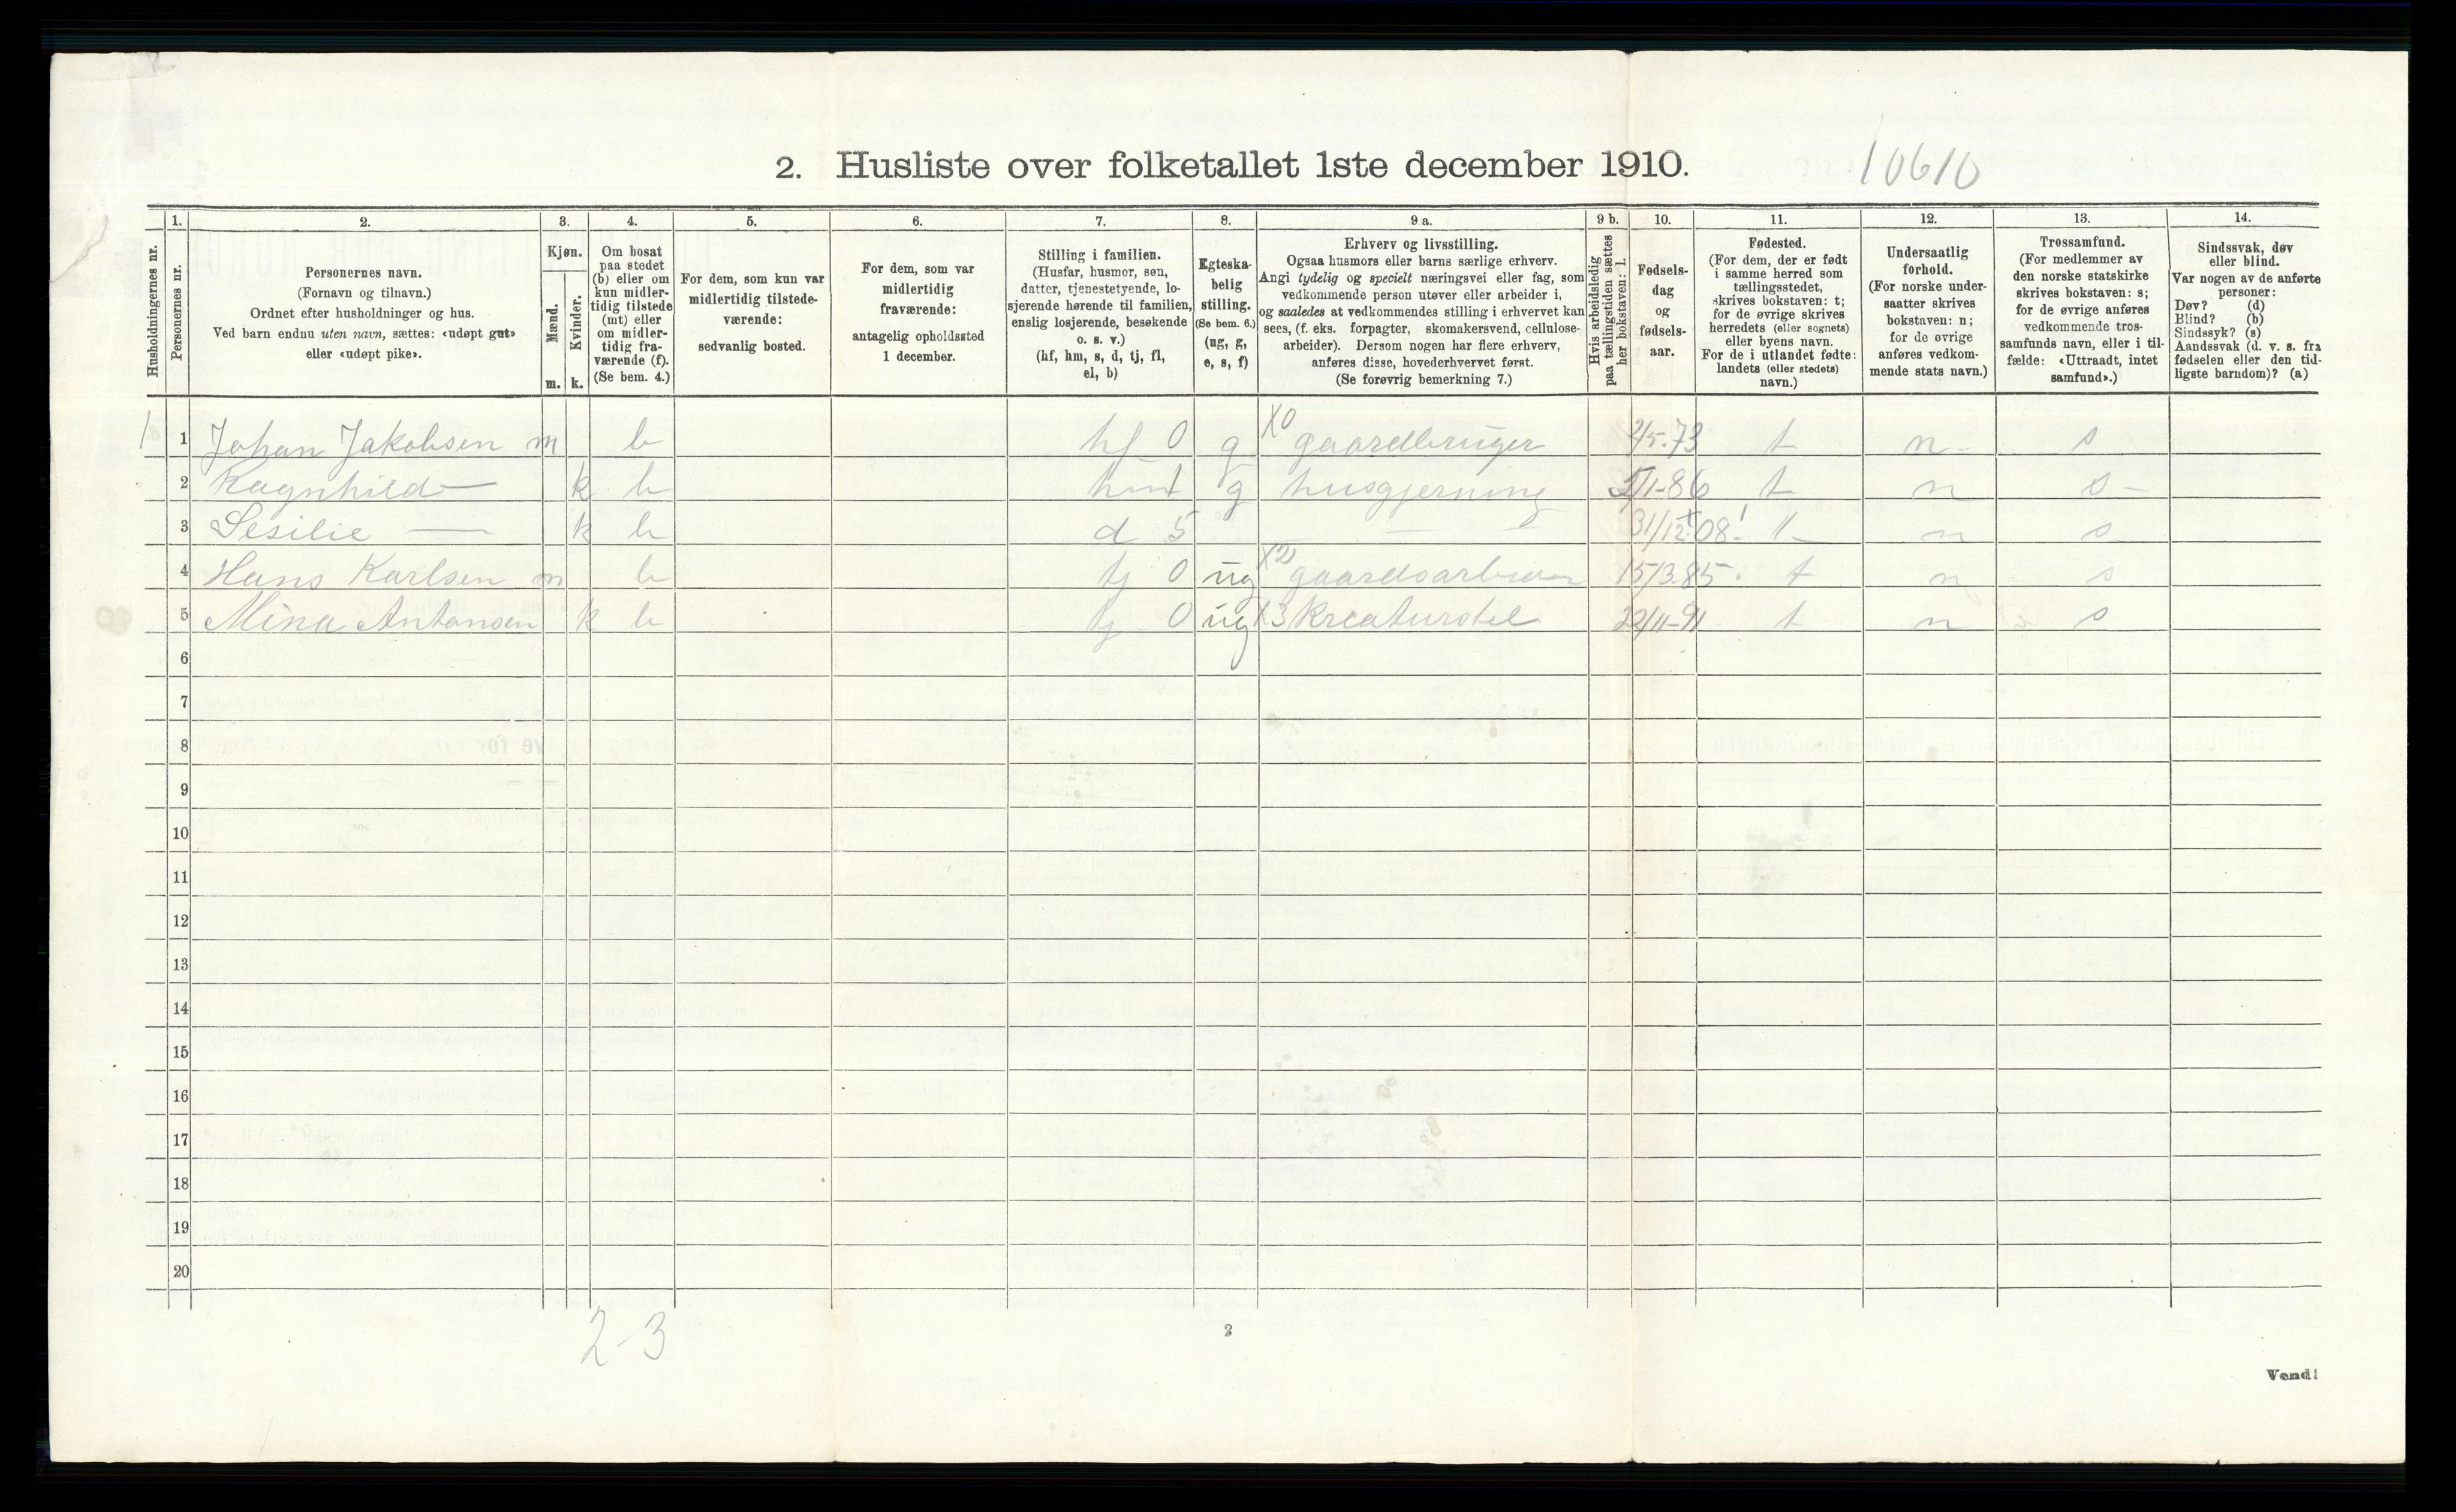 2. Husliste over folketallet 1ste december 1910.
10610
Husholdningernes nr.
1.
Personernes nr.
2.
Personernes navn.
(Fornavn og tilnavn.)
Ordnet efter husholdninger og hus.
Ved barn endnu uten navn, sættes: «udøpt gut»
eller «udøpt pike».
3.
Kjøn.
Mænd.
m.
Kvinder.
k.
4.
Om bosat
paa stedet
(b) eller om
kun midler-
tidig tilstede
(mt) eller
om midler-
tidig fra-
værende (f).
(Se bem. 4.)
5.
For dem, som kun var
midlertidig tilstede-
værende:
sedvanlig bosted.
6.
For dem, som var
midlertidig
fraværende:
antagelig opholdssted
1 december.
7.
Stilling i familien.
(Husfar, husmor, søn,
datter, tjenestetyende, lo-
sjerende hørende til familien,
enslig losjerende, besøkende
o. s. v.)
(hf, hm, s, d, tj, fl,
el, b)
8.
Egteska-
belig
stilling.
(Se bem. 6.)
(ug, g,
e, s, f)
9 a.
Erhverv og livsstilling.
Ogsaa husmors eller barns særlige erhverv.
Angi tydelig og specielt næringsvei eller fag, som
vedkommende person utøver eller arbeider i,
og saaledes at vedkommendes stilling i erhvervet kan
sees, (f. eks. forpagter, skomakersvend, cellulose-
arbeider). Dersom nogen har flere erhverv,
anføres disse, hovederhvervet først.
(Se forøvrig bemerkning 7.)
9 b.
Hvis arbeidsledig
paa tællingstiden sættes
her bokstaven: l.
10.
Fødsels-
dag
og
fødsels-
aar.
11.
Fødested.
(For dem, der er født
i samme herred som
tællingsstedet,
skrives bokstaven: t;
for de øvrige skrives
herredets (eller sognets)
eller byens navn.
For de i utlandet fødte:
landets (eller stedets)
navn.)
12.
Undersaatlig
forhold.
(For norske under-
saatter skrives
bokstaven: n;
for de øvrige
anføres vedkom-
mende stats navn.)
13.
Trossamfund.
(For medlemmer av
den norske statskirke
skrives bokstaven: s;
for de øvrige anføres
vedkommende tros-
samfunds navn, eller i til-
fælde: «Uttraadt, intet
samfund».)
14.
Sindssvak, døv
eller blind.
Var nogen av de anførte
personer:
Døv? (d)
Blind? (b)
Sindssyk? (s)
Aandssvak (d. v. s. fra
fødselen eller den tid-
ligste barndom)? (a)
1 1 Johan Jakobsen m b hf 0 g X0 gaardbruger 2/5.73 t n - s
2 Ragnhild — k b hm 1 g husgjerning 5/1-86 t n s -
3 Sesilie — k b d 5 — 31/12.08 t n s
4 Hans Karlsen m b tj 0 ug X2 gaardsarbeider 15/3.85 t n s
5 Mina Antonsen k b tj 0 ug X3 kreaturstel 22/11-91 t n s
6
7
8
9
10
11
12
13
14
15
16
17
18
19
20
2-3
2
Vend!